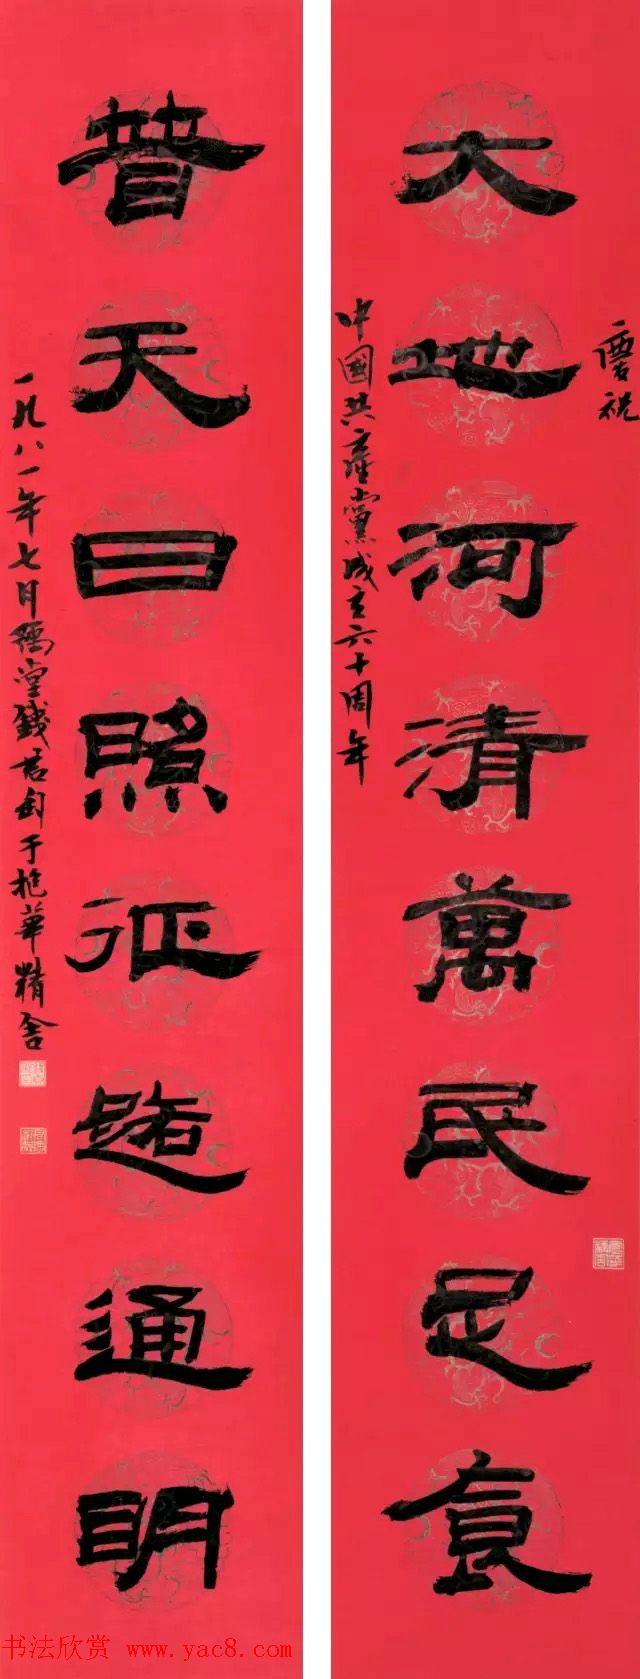 慶祝
大地河清萬民足食
中國共產黨成立六十周年
普天日照征路通明
一九八一年七月豫堂錢君匋于抱華精舍
书法欣赏 www.yac8.com